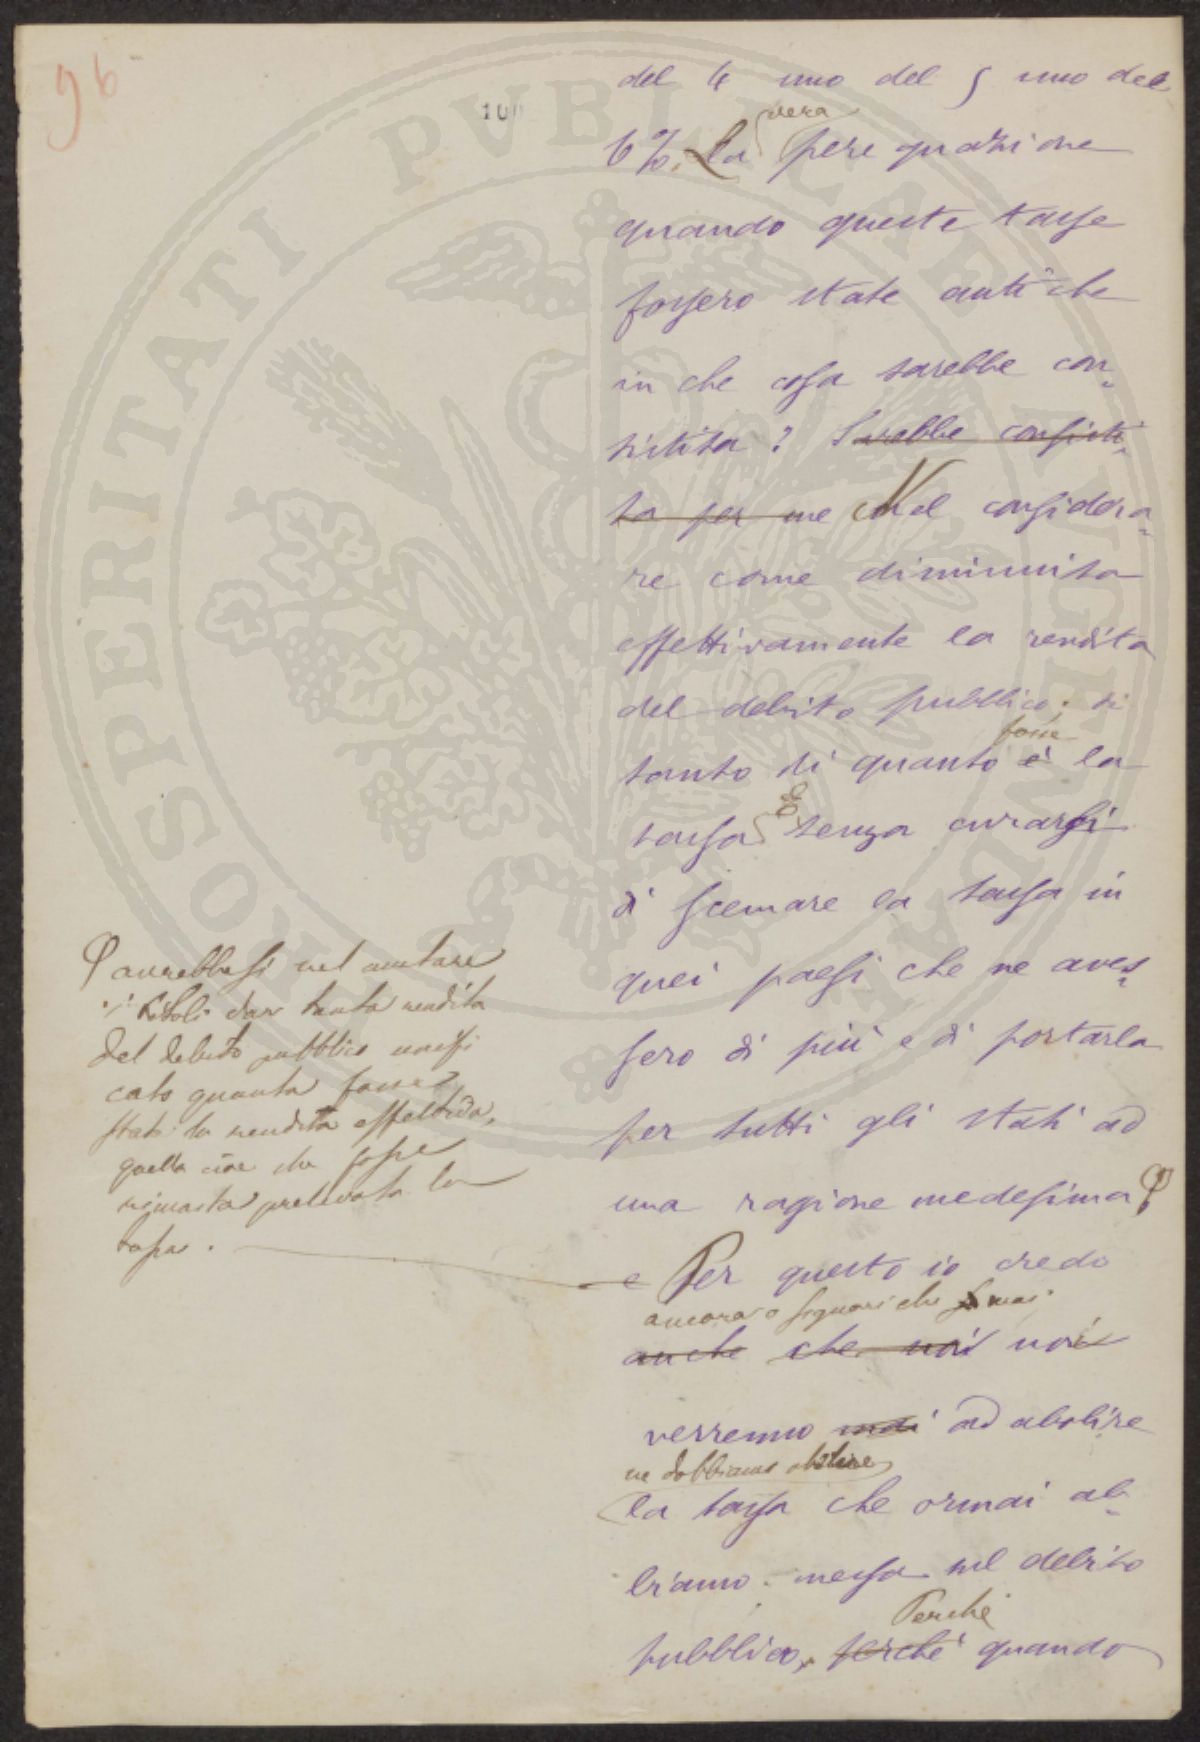 96
100
del 4 uno del 5 uno del
vera
6%. La perequazione
quando queste tasse
fossero state antiche
in che cosa sarebbe con=
sistita? Sarebbe consisti=
ta per me Nel considera=
re come diminuita
effettivamente la rendita
del debito pubblico; di
fosse
tanto di quanto è la
E
tassa senza curarsi
di scemare la tassa in
quei paesi che ne aves=
sero di più e di portarla
per tutti gli stati ad
una ragione medesima
avrebbesi nel mutare
i titoli dar tanta rendita
del debito pubblico unifi
cato quanta fosse
stata la rendita effettiva,
quella cioè che fosse
rimasta prelevata la
tassa.
e Per questo io credo
ancora o signori che mai
anche che noi noi
verremo mai ad abolire
ne dobbiamo abolire
la tassa che ormai ab=
biamo messa nel debito
Perchè
pubblico, perchè quando
PVBLICAE
PROSPERITATI